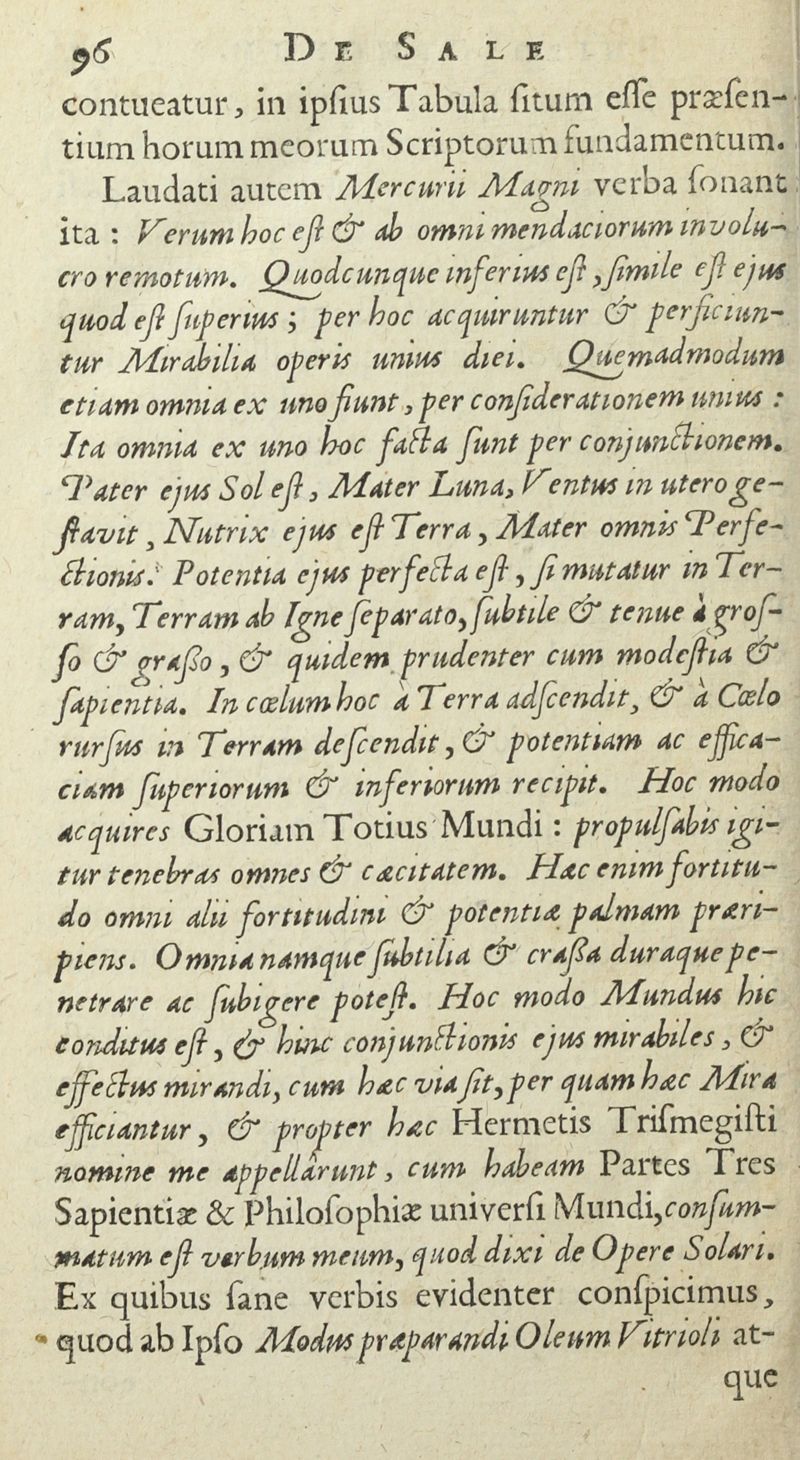 96 DE SALE
contueatur, in ipſius Tabula ſitum eſſe præſen-
tium horum meorum Scriptorum fundamentum.
Laudati autem Mercurii Magni verba ſonant
ita : Verum hoc eſt & ab omni mendaciorum involu-
cro remotum. Quodcunque inferius eſt, ſimile eſt ejus
quod eſt ſuperius ; per hoc acquiruntur & perficiun-
tur Mirabilia operis unius diei. Quemadmodum
etiam omnia ex uno fiunt, per conſiderationem unius :
Ita omnia ex uno hoc facta ſunt per conjunctionem.
Pater ejus Sol eſt, Mater Luna, Ventus in utero ge-
ſtavit, Nutrix ejus eſt Terra, Mater omnis Perfe-
ctionis. Potentia ejus perfecta eſt, ſi mutatur in Ter-
ram, Terram ab Igne ſeparato, ſubtile & tenue à groſ-
ſo & graſſo, & quidem prudenter cum modeſtia &
ſapientia. In cœlum hoc à Terra adſcendit, & à Cœlo
rurſus in Terram deſcendit, & potentiam ac effica-
ciam ſuperiorum & inferiorum recipit. Hoc modo
acquires Gloriam Totius Mundi : propulſabis igi-
tur tenebras omnes & cæcitatem. Hæc enim fortitu-
do omni alii fortitudini & potentiæ palmam præri-
piens. Omnia namque ſubtilia & craſſa duraque pe-
netrare ac ſubigere poteſt. Hoc modo Mundus hic
conditus eſt, & hinc conjunctionis ejus mirabiles, &
effectus mirandi, cum hæc via ſit, per quam hæc Mira
efficiantur, & propter hæc Hermetis Triſmegiſti
nomine me appellârunt, cum habeam Partes Tres
Sapientiæ & Philoſophiæ univerſi Mundi, conſum-
matum eſt verbum meum, quod dixi de Opere Solari.
Ex quibus ſane verbis evidenter conſpicimus,
quod ab Ipſo Modus præparandi Oleum Vitrioli at-
que